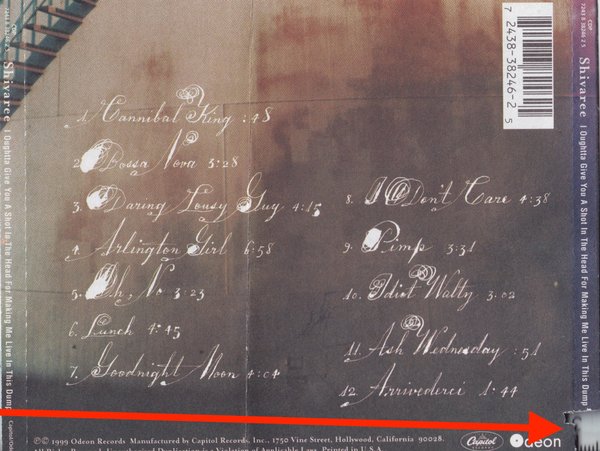 CDP
7243 8 38246 2 5
Shivaree I Oughtta Give You A Shot In The Head For Making Me Live In This Dump
7 2438-38246-2 5
1. Cannibal King :48
2. Bossa Nova 3:28
3. Daring Lousy Guy 4:15
4. Arlington Girl 6:58
5. Oh, No 3:23
6. Lunch 4:45
7. Goodnight Moon 4:04
8. I Don't Care 4:38
9. Pimp 3:31
10. Idiot Waltz 3:02
11. Ash Wednesday :51
12. Arrivederci 1:44
℗© 1999 Odeon Records Manufactured by Capitol Records, Inc., 1750 Vine Street, Hollwood, California 90028.
Capitol
Odeon
CDP
7243 8 38246 2 5
Shivaree I Oughtta Give You A Shot In The Head For Making Me Live In This Dump